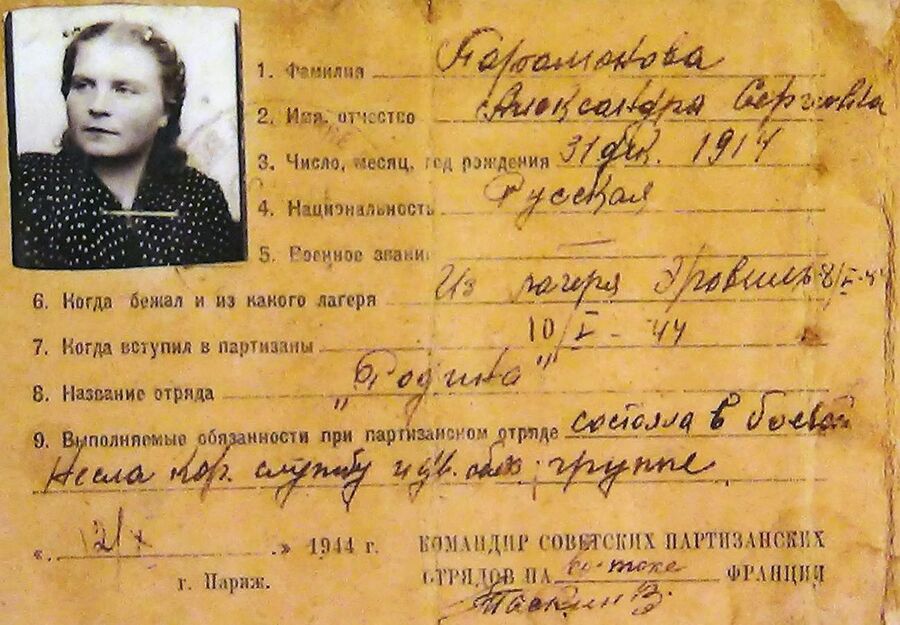 1. Фамилия Парамонова
2. Имя, отчество Александра Сергеевна
3. Число, месяц, год рождения 31 дек. 1914
4. Национальность Русская
5. Военное звание —
6. Когда бежал и из какого лагеря Из лагеря Эрвиль 8/I-44
7. Когда вступил в партизаны 10/I - 44
8. Название отряда „Родина"
9. Выполняемые обязанности при партизанском отряде состояла в боевой
Несла кар. службу группе
«21/X» 1944 г. КОМАНДИР СОВЕТСКИХ ПАРТИЗАНСКИХ
г. Париж. ОТРЯДОВ НА во-токе ФРАНЦИИ
Таскин В.